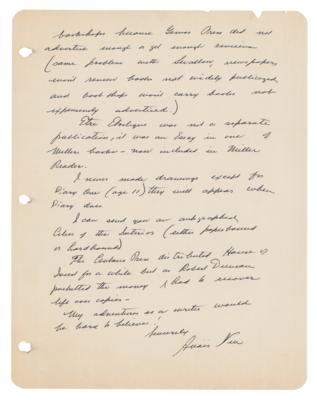 bookshops because Gemor Press did not
advertise enough or get enough reviews
(same problem with Swallow, newspapers
won't review books not widely publicized
and bookshops won't carry books not
expensively advertised.)
Etre Etoilique was not a separate
publication, it was an Essay in one of
Miller books – now included in Miller
Reader.
I never made drawings except for
Diary One (age 11) they will appear when
Diary does.
I can send you an autographed
Cities of the Interior (either paperbound
or hardbound)
The Centaur Press distributed House of
Incest for a while but as Robert Duncan
pocketed the money I had to recover
left over copies –
My adventures as a writer would
be hard to believe!
Sincerely
Anaïs Nin